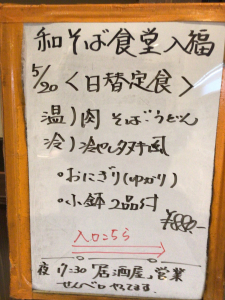 和そば食堂入福
5/20 <日替定食>
温)肉 そば・うどん
冷)冷やしタヌキ風
・おにぎり(ゆかり)
・小鉢2品付
¥880-
入口こちら
夜 17:30「居酒屋」営業
せんべロ やってます。